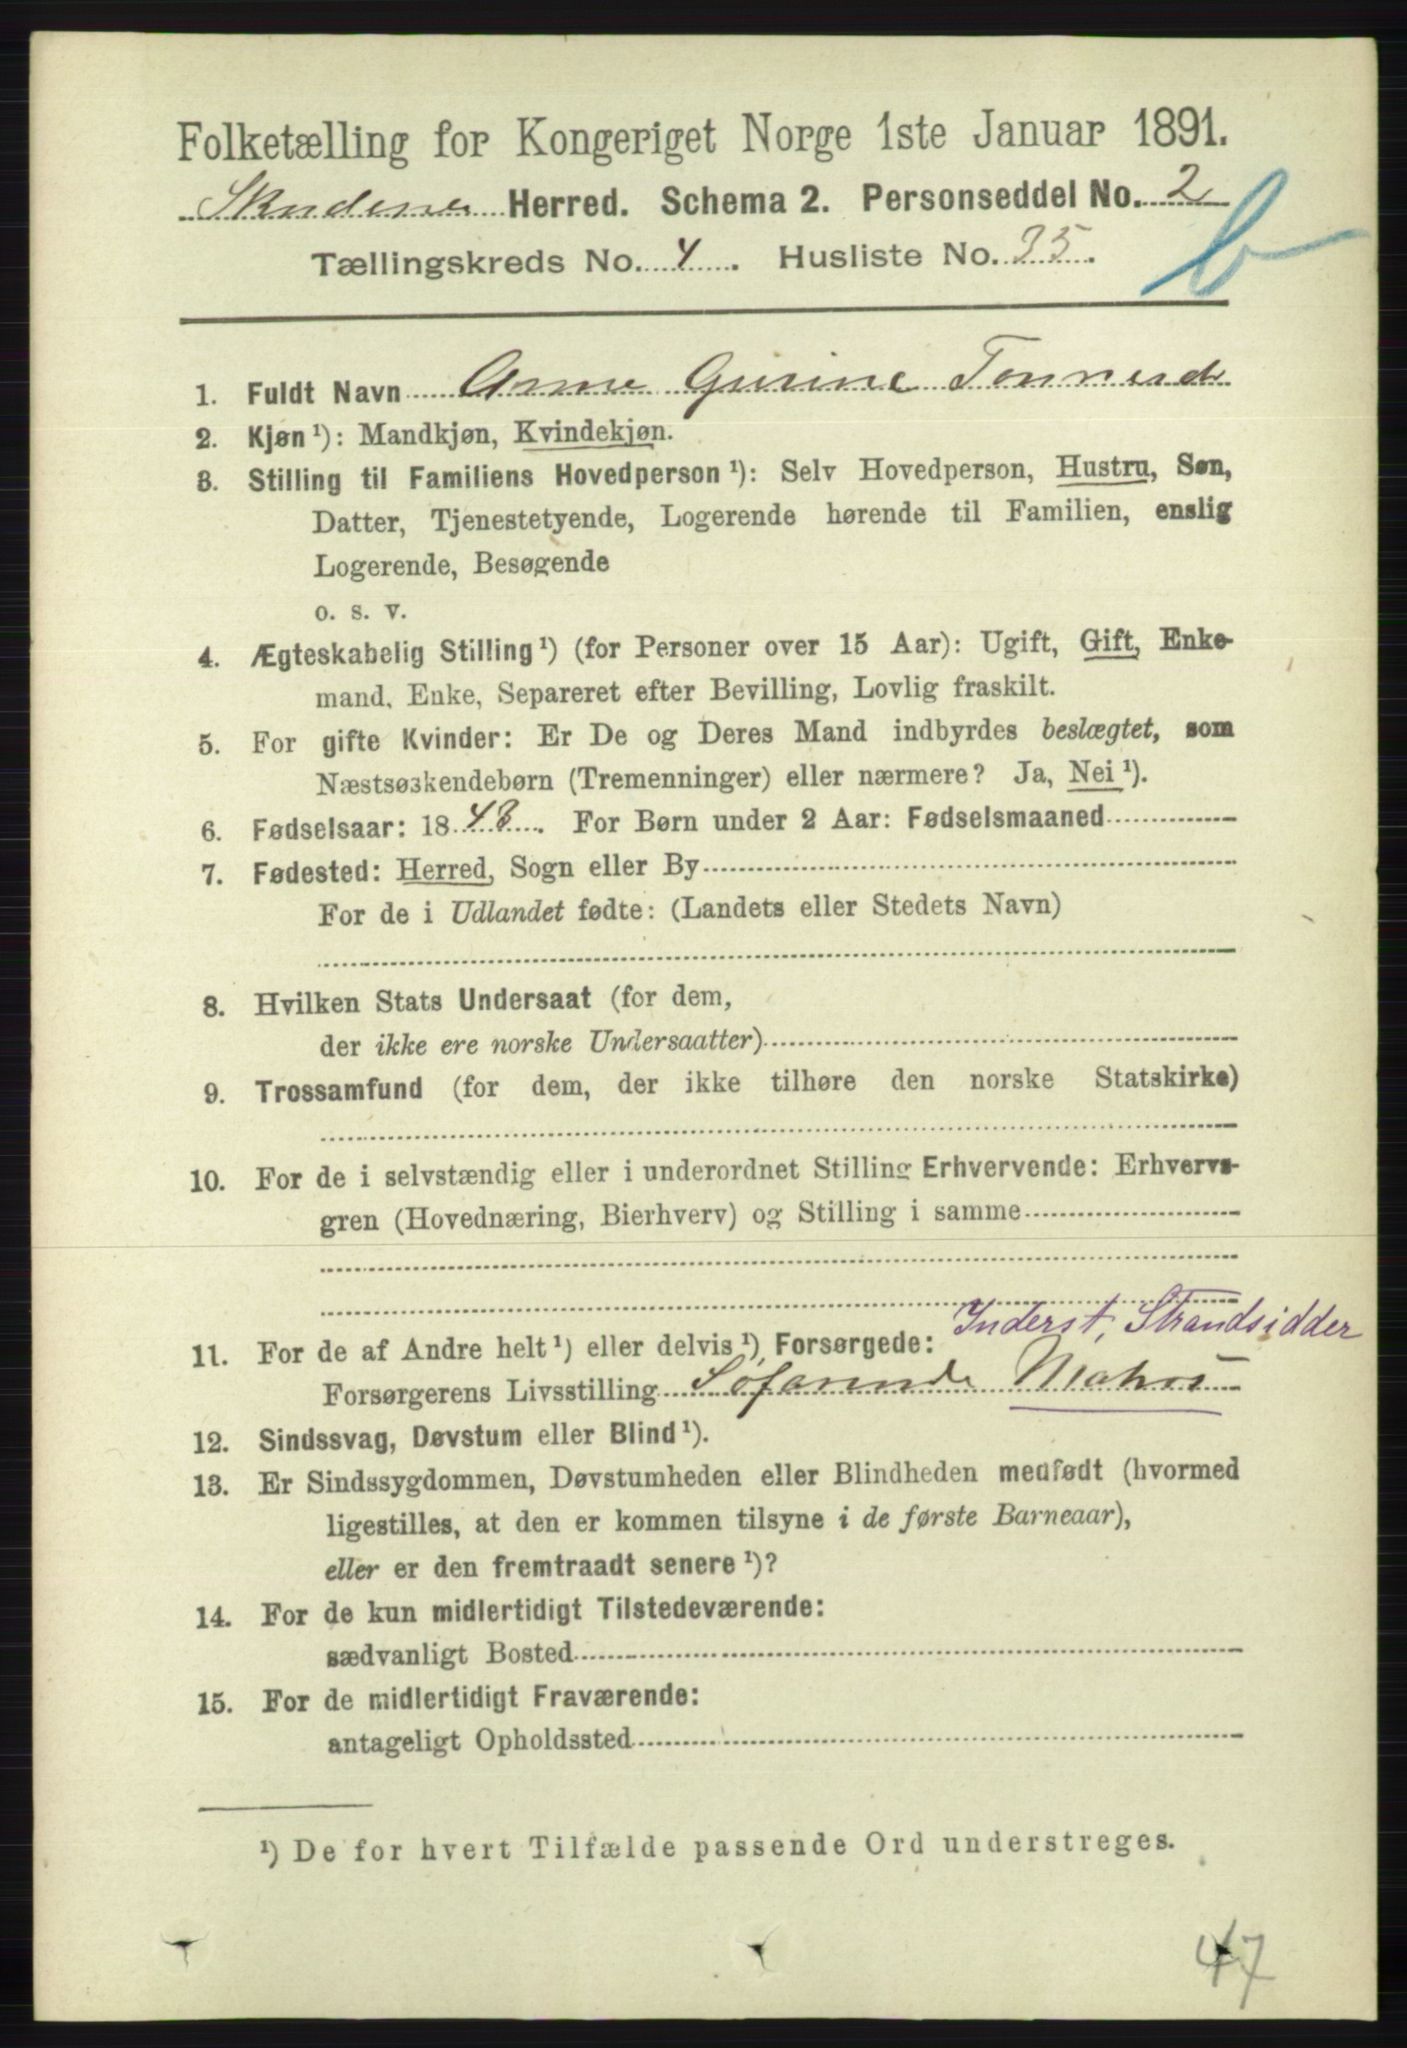 Folketælling for Kongeriget Norge 1ste Januar 1891.
Skudenes Herred. Schema 2. Personseddel No. 2
Tællingskreds No. 4. Husliste No. 35.
b
1. Fuldt Navn Anne Gurine
2. Kjøn¹): Mandkjøn, Kvindekjøn.
3. Stilling til Familiens Hovedperson¹): Selv Hovedperson, Hustru, Søn,
Datter, Tjenestetyende, Logerende hørende til Familien, enslig
Logerende, Besøgende
o. s. v.
4. Ægteskabelig Stilling¹) (for Personer over 15 Aar): Ugift, Gift, Enke-
mand, Enke, Separeret efter Bevilling, Lovlig fraskilt.
5. For gifte Kvinder: Er De og Deres Mand indbyrdes beslægtet, som
Næstsøskendebørn (Tremenninger) eller nærmere? Ja, Nei¹).
6. Fødselsaar: 1848. For Børn under 2 Aar: Fødselsmaaned
7. Fødested: Herred, Sogn eller By
For de i Udlandet fødte: (Landets eller Stedets Navn)
8. Hvilken Stats Undersaat (for dem,
der ikke ere norske Undersaatter)
9. Trossamfund (for dem, der ikke tilhøre den norske Statskirke)
10. For de i selvstændig eller i underordnet Stilling Erhvervende: Erhvervs-
gren (Hovednæring, Bierhverv) og Stilling i samme
Inderst, Strandsidder
11. For de af Andre helt¹) eller delvis¹) Forsørgede:
Forsørgerens Livsstilling Søfarende Matros
12. Sindssvag, Døvstum eller Blind¹).
13. Er Sindssygdommen, Døvstumheden eller Blindheden medfødt (hvormed
ligestilles, at den er kommen tilsyne i de første Barneaar),
eller er den fremtraadt senere¹)?
14. For de kun midlertidigt Tilstedeværende:
sædvanligt Bosted
15. For de midlertidigt Fraværende:
antageligt Opholdssted
¹) De for hvert Tilfælde passende Ord understreges.
47